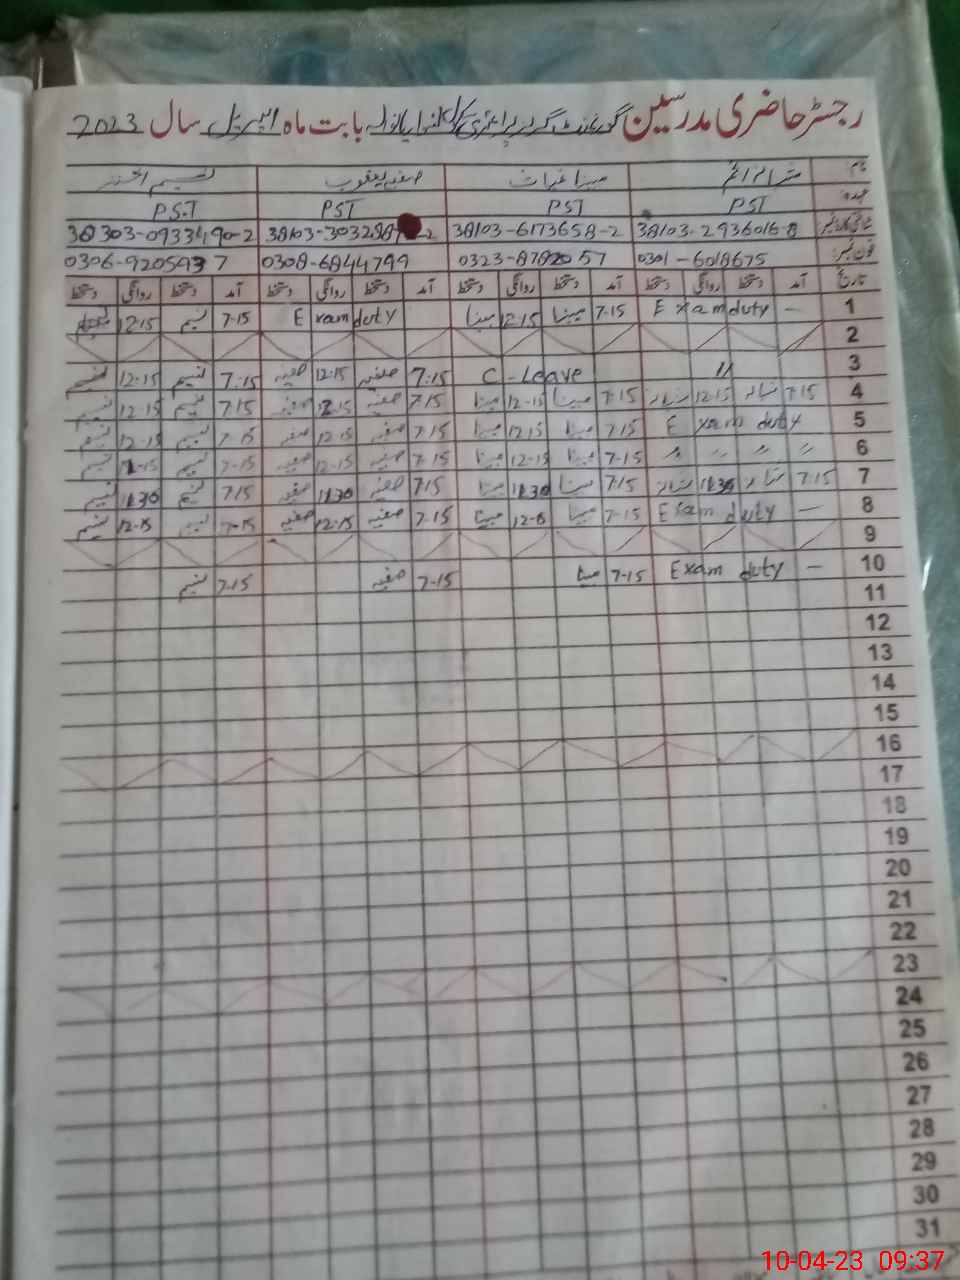 رجسٹر حاضری مدرسین گورنمنٹ گرلز پرائمری سکول بابت ماہ اپریل سال 2023
نام صفیہ یعقوب نسیم اختر
عہدہ PST PST PST PST
شناختی کارڈ نمبر 38103-2936016-8 38103-6173658-2 38103-30328 38303-0933490-2
فون نمبر 0301-6018675 0323-8782057 0308-6844799 0306-9205937
تاریخ آمد دستخط روانگی دستخط آمد دستخط روانگی دستخط آمد دستخط روانگی دستخط آمد دستخط روانگی دستخط
1 Exam duty — 7-15 مینا 12-15 مینا Exam duty 7-15 نسیم 12-15
2
3 〃 C-Leave 7-15 صفیہ 12-15 صفیہ 7-15 نسیم 12-15 نسیم
4 7-15 12-15 7-15 مینا 12-15 مینا 7-15 صفیہ 12-15 صفیہ 7-15 نسیم 12-15 نسیم
5 Exam duty 7-15 مینا 12-15 مینا 7-15 صفیہ 12-15 صفیہ 7-15 نسیم 12-15 نسیم
6 〃 〃 〃 〃 7-15 مینا 12-15 مینا 7-15 صفیہ 12-15 صفیہ 7-15 نسیم 12-15 نسیم
7 7-15 11-30 7-15 مینا 11-30 مینا 7-15 صفیہ 11-30 صفیہ 7-15 نسیم 11-30 نسیم
8 Exam duty — 7-15 مینا 12-15 مینا 7-15 صفیہ 12-15 صفیہ 7-15 نسیم 12-15 نسیم
9
10 Exam duty — 7-15 مینا 7-15 صفیہ 7-15 نسیم
11
12
13
14
15
16
17
18
19
20
21
22
23
24
25
26
27
28
29
30
31
10-04-23 09:37